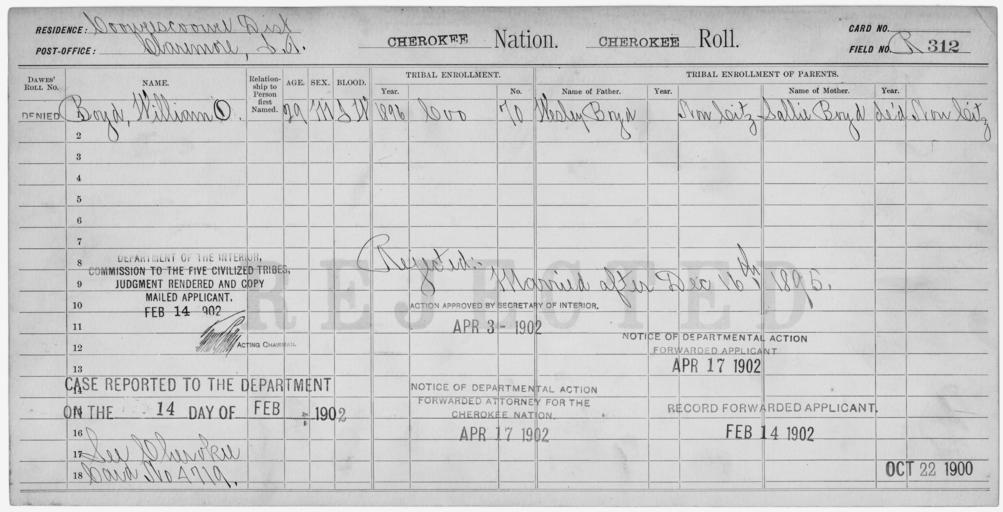 RESIDENCE: Coowescoowee Dist
POST-OFFICE: Claremore, I.T.
CHEROKEE Nation. CHEROKEE Roll.
CARD NO.
FIELD NO. R 312
DAWES' ROLL NO. NAME. Relationship to Person first Named. AGE. SEX. BLOOD. TRIBAL ENROLLMENT. TRIBAL ENROLLMENT OF PARENTS.
Year. County. No. Name of Father. Year. County. Name of Mother. Year. County.
DENIED Boyd, William O. 29 M I W 1896 Coo 70 Wesley Boyd Non Citz Sallie Boyd de'd Non Citz
2
3
4
5
6
7
8
9
10
11
12
13
14
16
17
18
REJECTED
Rejected:-
Married after Dec 16th, 1895.
DEPARTMENT OF THE INTERIOR,
COMMISSION TO THE FIVE CIVILIZED TRIBES,
JUDGMENT RENDERED AND COPY
MAILED APPLICANT.
FEB 14 902
ACTING CHAIRMAN.
ACTION APPROVED BY SECRETARY OF INTERIOR.
APR 3 - 1902
NOTICE OF DEPARTMENTAL ACTION
FORWARDED APPLICANT
APR 17 1902
CASE REPORTED TO THE DEPARTMENT
ON THE 14 DAY OF FEB 1902
NOTICE OF DEPARTMENTAL ACTION
FORWARDED ATTORNEY FOR THE
CHEROKEE NATION.
APR 17 1902
RECORD FORWARDED APPLICANT.
FEB 14 1902
See Cherokee
Card No 4719.
OCT 22 1900